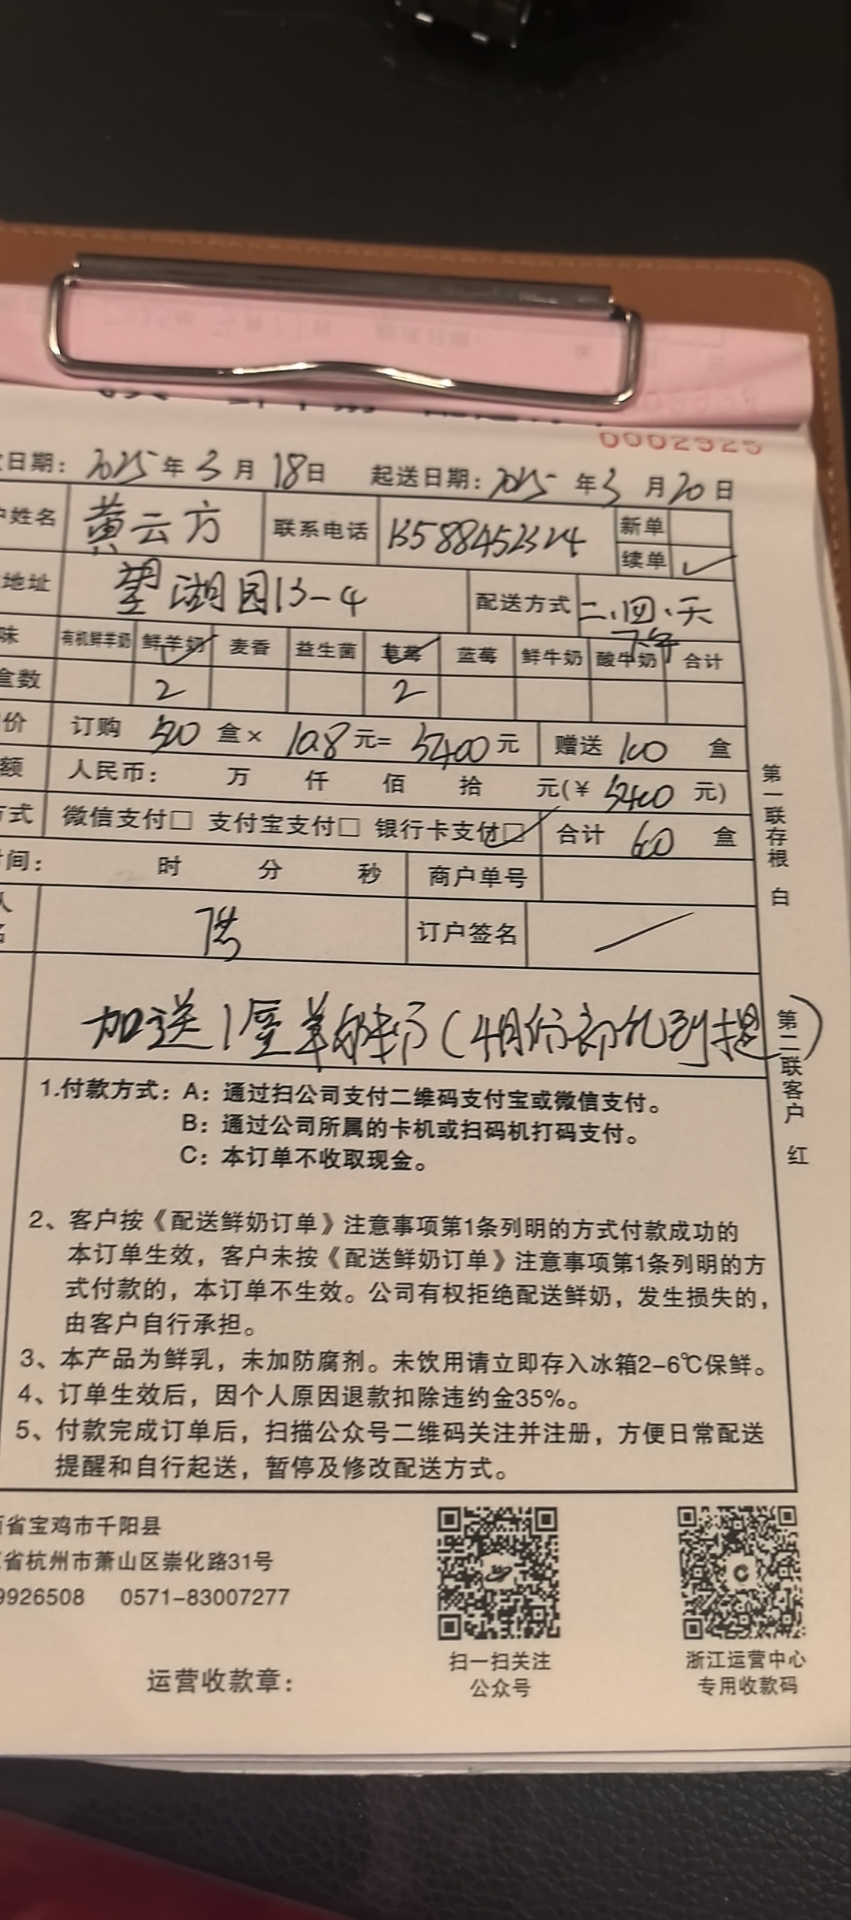 0002925
日期：2025年3月18日 起送日期：2025年3月20日
姓名 黄云方 联系电话 13588452324 新单
续单 ✓
地址 望湖园13-4 配送方式 二、四、天
下午
味 有机鲜羊奶 鲜羊奶 麦香 益生菌 草莓 蓝莓 鲜牛奶 酸牛奶 合计
盒数 2 2
价 订购 500 盒× 10.8 元= 5400 元 赠送 100 盒
额 人民币： 万 仟 佰 拾 元(¥ 5400 元)
方式 微信支付□ 支付宝支付□ 银行卡支付☑ 合计 600 盒
间： 时 分 秒 商户单号
人
名 订户签名
加送1
(4月份
1.付款方式：A：通过扫公司支付二维码支付宝或微信支付。
B：通过公司所属的卡机或扫码机打码支付。
C：本订单不收取现金。
2、客户按《配送鲜奶订单》注意事项第1条列明的方式付款成功的
本订单生效，客户未按《配送鲜奶订单》注意事项第1条列明的方
式付款的，本订单不生效。公司有权拒绝配送鲜奶，发生损失的，
由客户自行承担。
3、本产品为鲜乳，未加防腐剂。未饮用请立即存入冰箱2-6℃保鲜。
4、订单生效后，因个人原因退款扣除违约金35%。
5、付款完成订单后，扫描公众号二维码关注并注册，方便日常配送
提醒和自行起送，暂停及修改配送方式。
省宝鸡市千阳县
省杭州市萧山区崇化路31号
9926508 0571-83007277
运营收款章：
扫一扫关注
公众号
浙江运营中心
专用收款码
第一联存根 白
第二联客户 红